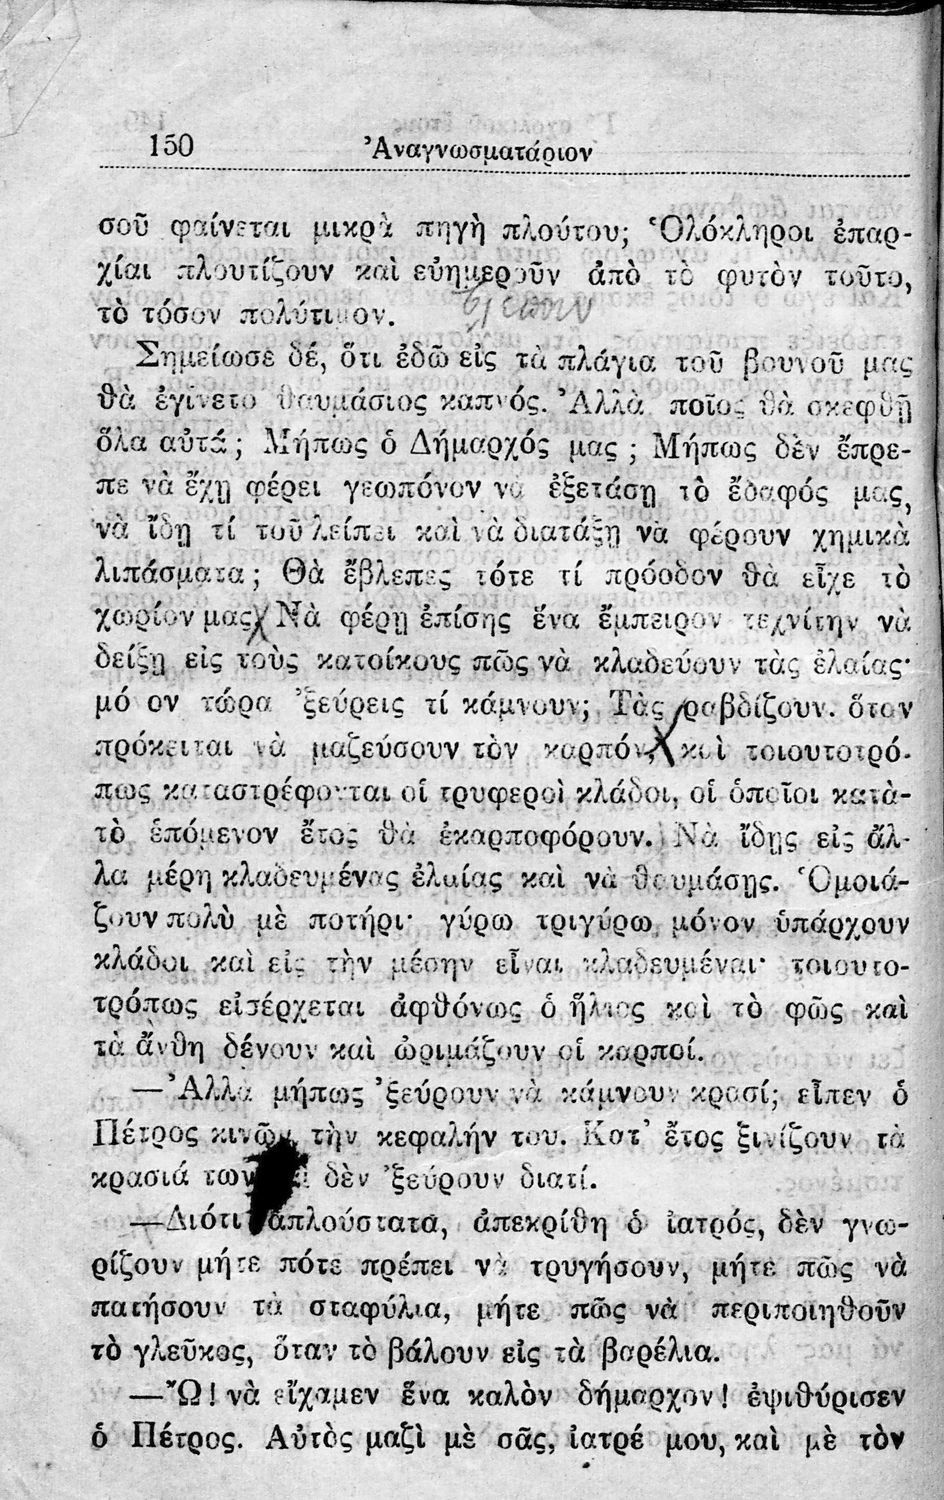 150 Ἀναγνωσματάριον
σοῦ φαίνεται μικρὰ πηγὴ πλούτου; Ὁλόκληροι ἐπαρ-
χίαι πλουτίζουν καὶ εὐημεροῦν ἀπὸ τὸ φυτὸν τοῦτο,
τὸ τόσον πολύτιμον.
Σημείωσε δέ, ὅτι ἐδῶ εἰς τὰ πλάγια τοῦ βουνοῦ μας
θὰ ἐγίνετο θαυμάσιος καπνός. Ἀλλὰ ποῖος θὰ σκεφθῇ
ὅλα αὐτά; Μήπως ὁ Δήμαρχός μας ; Μήπως δὲν ἔπρε-
πε νὰ ἔχῃ φέρει γεωπόνον νὰ ἐξετάσῃ τὸ ἔδαφός μας,
νὰ ἴδῃ τί τοῦ λείπει καὶ νὰ διατάξῃ νὰ φέρουν χημικὰ
λιπάσματα; Θὰ ἔβλεπες τότε τί πρόοδον θὰ εἶχε τὸ
χωρίον μας Νὰ φέρῃ ἐπίσης ἕνα ἔμπειρον τεχνίτην νὰ
δείξῃ εἰς τοὺς κατοίκους πῶς νὰ κλαδεύουν τὰς ἐλαίας·
μό ον τώρα ᾿ξεύρεις τί κάμνουν; Τὰς ραβδίζουν. ὅταν
πρόκειται νὰ μαζεύσουν τὸν καρπόν, καὶ τοιουτοτρό-
πως καταστρέφονται οἱ τρυφεροὶ κλάδοι, οἱ ὁποῖοι κατὰ-
τὸ ἑπόμενον ἔτος θὰ ἐκαρποφόρουν. Νὰ ἴδῃς εἰς ἄλ-
λα μέρη κλαδευμένας ἐλαίας καὶ νὰ θαυμάσῃς. Ὁμοιά-
ζουν πολὺ μὲ ποτήρι· γύρω τριγύρω μόνον ὑπάρχουν
κλάδοι καὶ εἰς τὴν μέσην εἶναι κλαδευμέναι· τοιουτο-
τρόπως εἰσέρχεται ἀφθόνως ὁ ἥλιος καὶ τὸ φῶς καὶ
τὰ ἄνθη δένουν καὶ ὡριμάζουν οἱ καρποί.
—Ἀλλὰ μήπως ᾿ξεύρουν νὰ κάμνουν κρασί; εἶπεν ὁ
Πέτρος κινῶν τὴν κεφαλήν του. Κατ᾿ ἔτος ξινίζουν τὰ
κρασιά των δὲν ᾿ξεύρουν διατί.
—Διότι ἁπλούστατα, ἀπεκρίθη ὁ ἰατρός, δὲν γνω-
ρίζουν μήτε πότε πρέπει νὰ τρυγήσουν, μήτε πῶς νὰ
πατήσουν τὰ σταφύλια, μήτε πῶς νὰ περιποιηθοῦν
τὸ γλεῦκος, ὅταν τὸ βάλουν εἰς τὰ βαρέλια.
—Ὤ! νὰ εἴχαμεν ἕνα καλὸν δήμαρχον! ἐψιθύρισεν
ὁ Πέτρος. Αὐτὸς μαζὶ μὲ σᾶς, ἰατρέ μου, καὶ μὲ τὸν